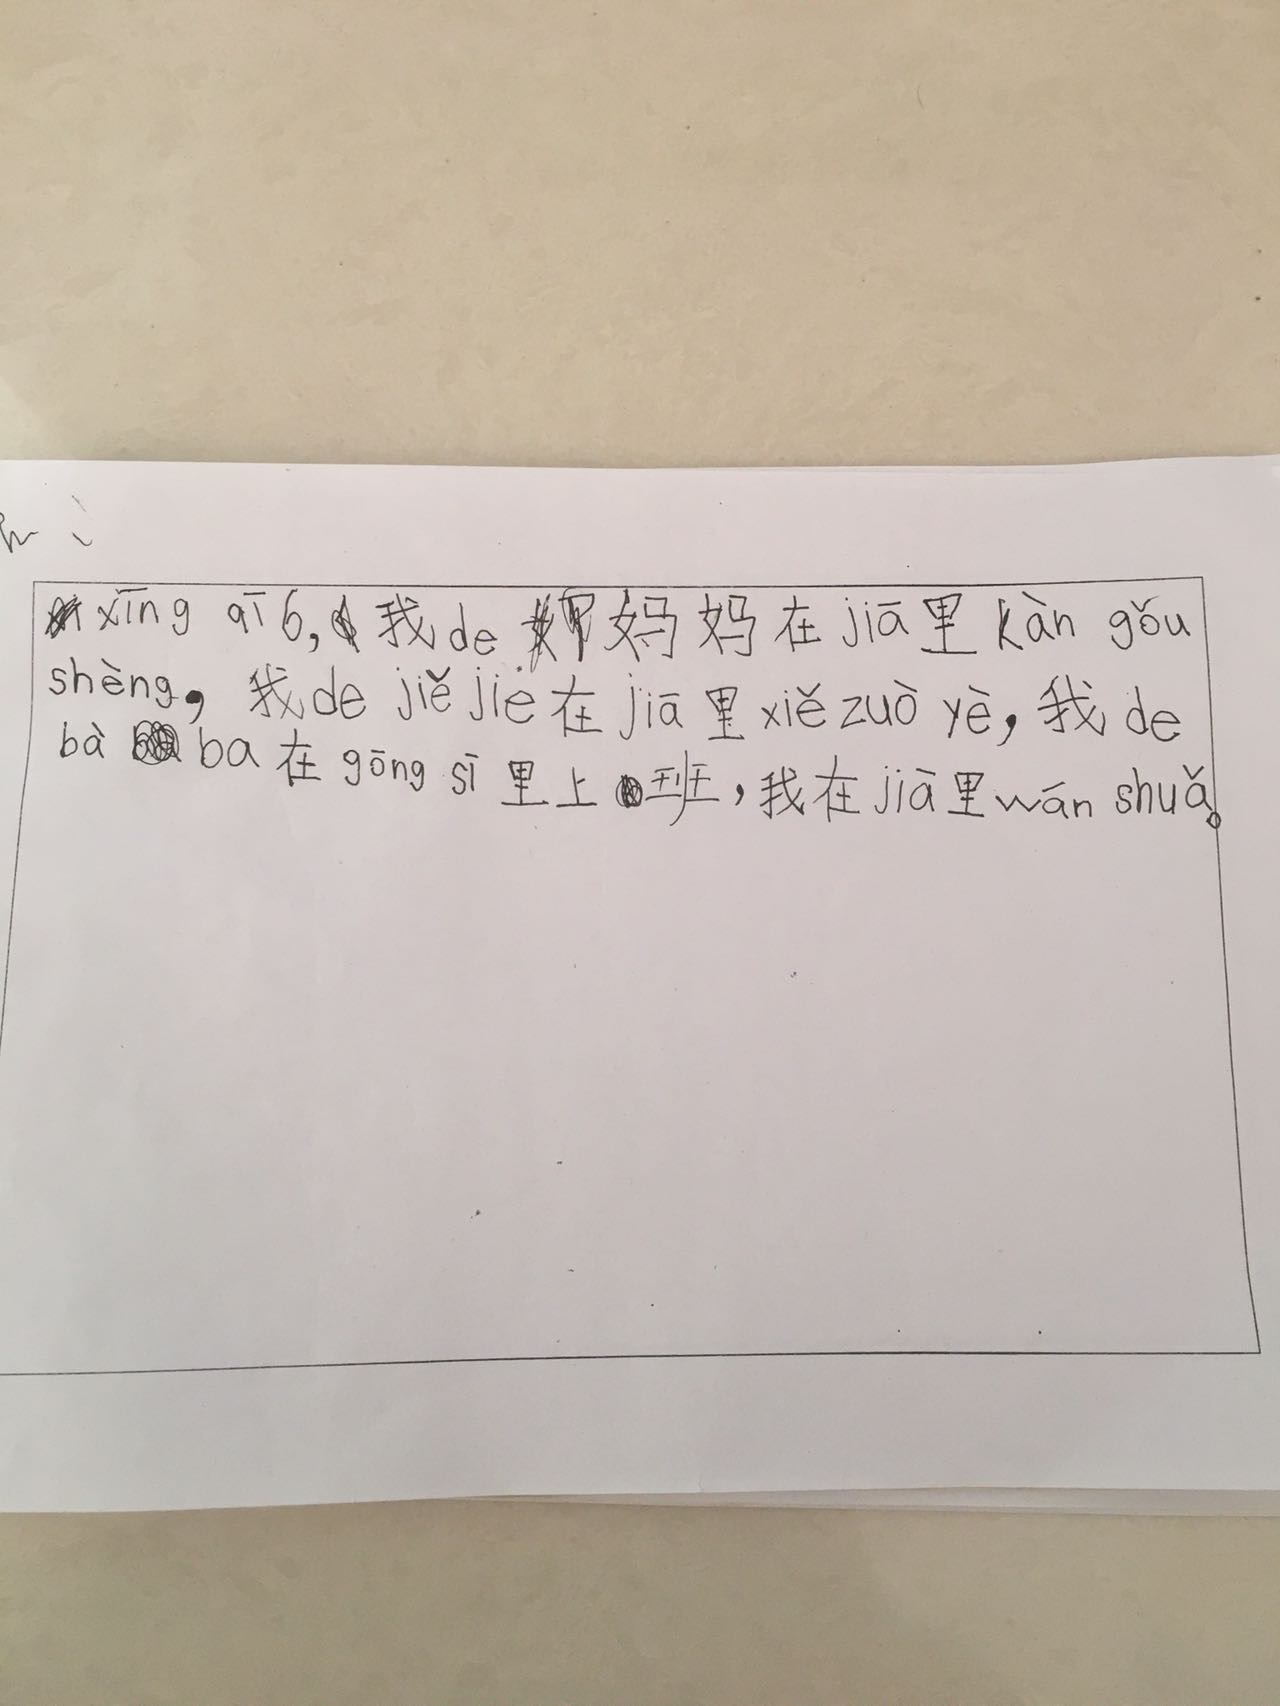 xīng qī 6, 我de 妈妈在jiā里 kàn gǒu
shèng, 我de jiě jie在jiā里xiě zuò yè, 我de
bà ba在gōng sī里上班, 我在jiā里wán shuǎ。